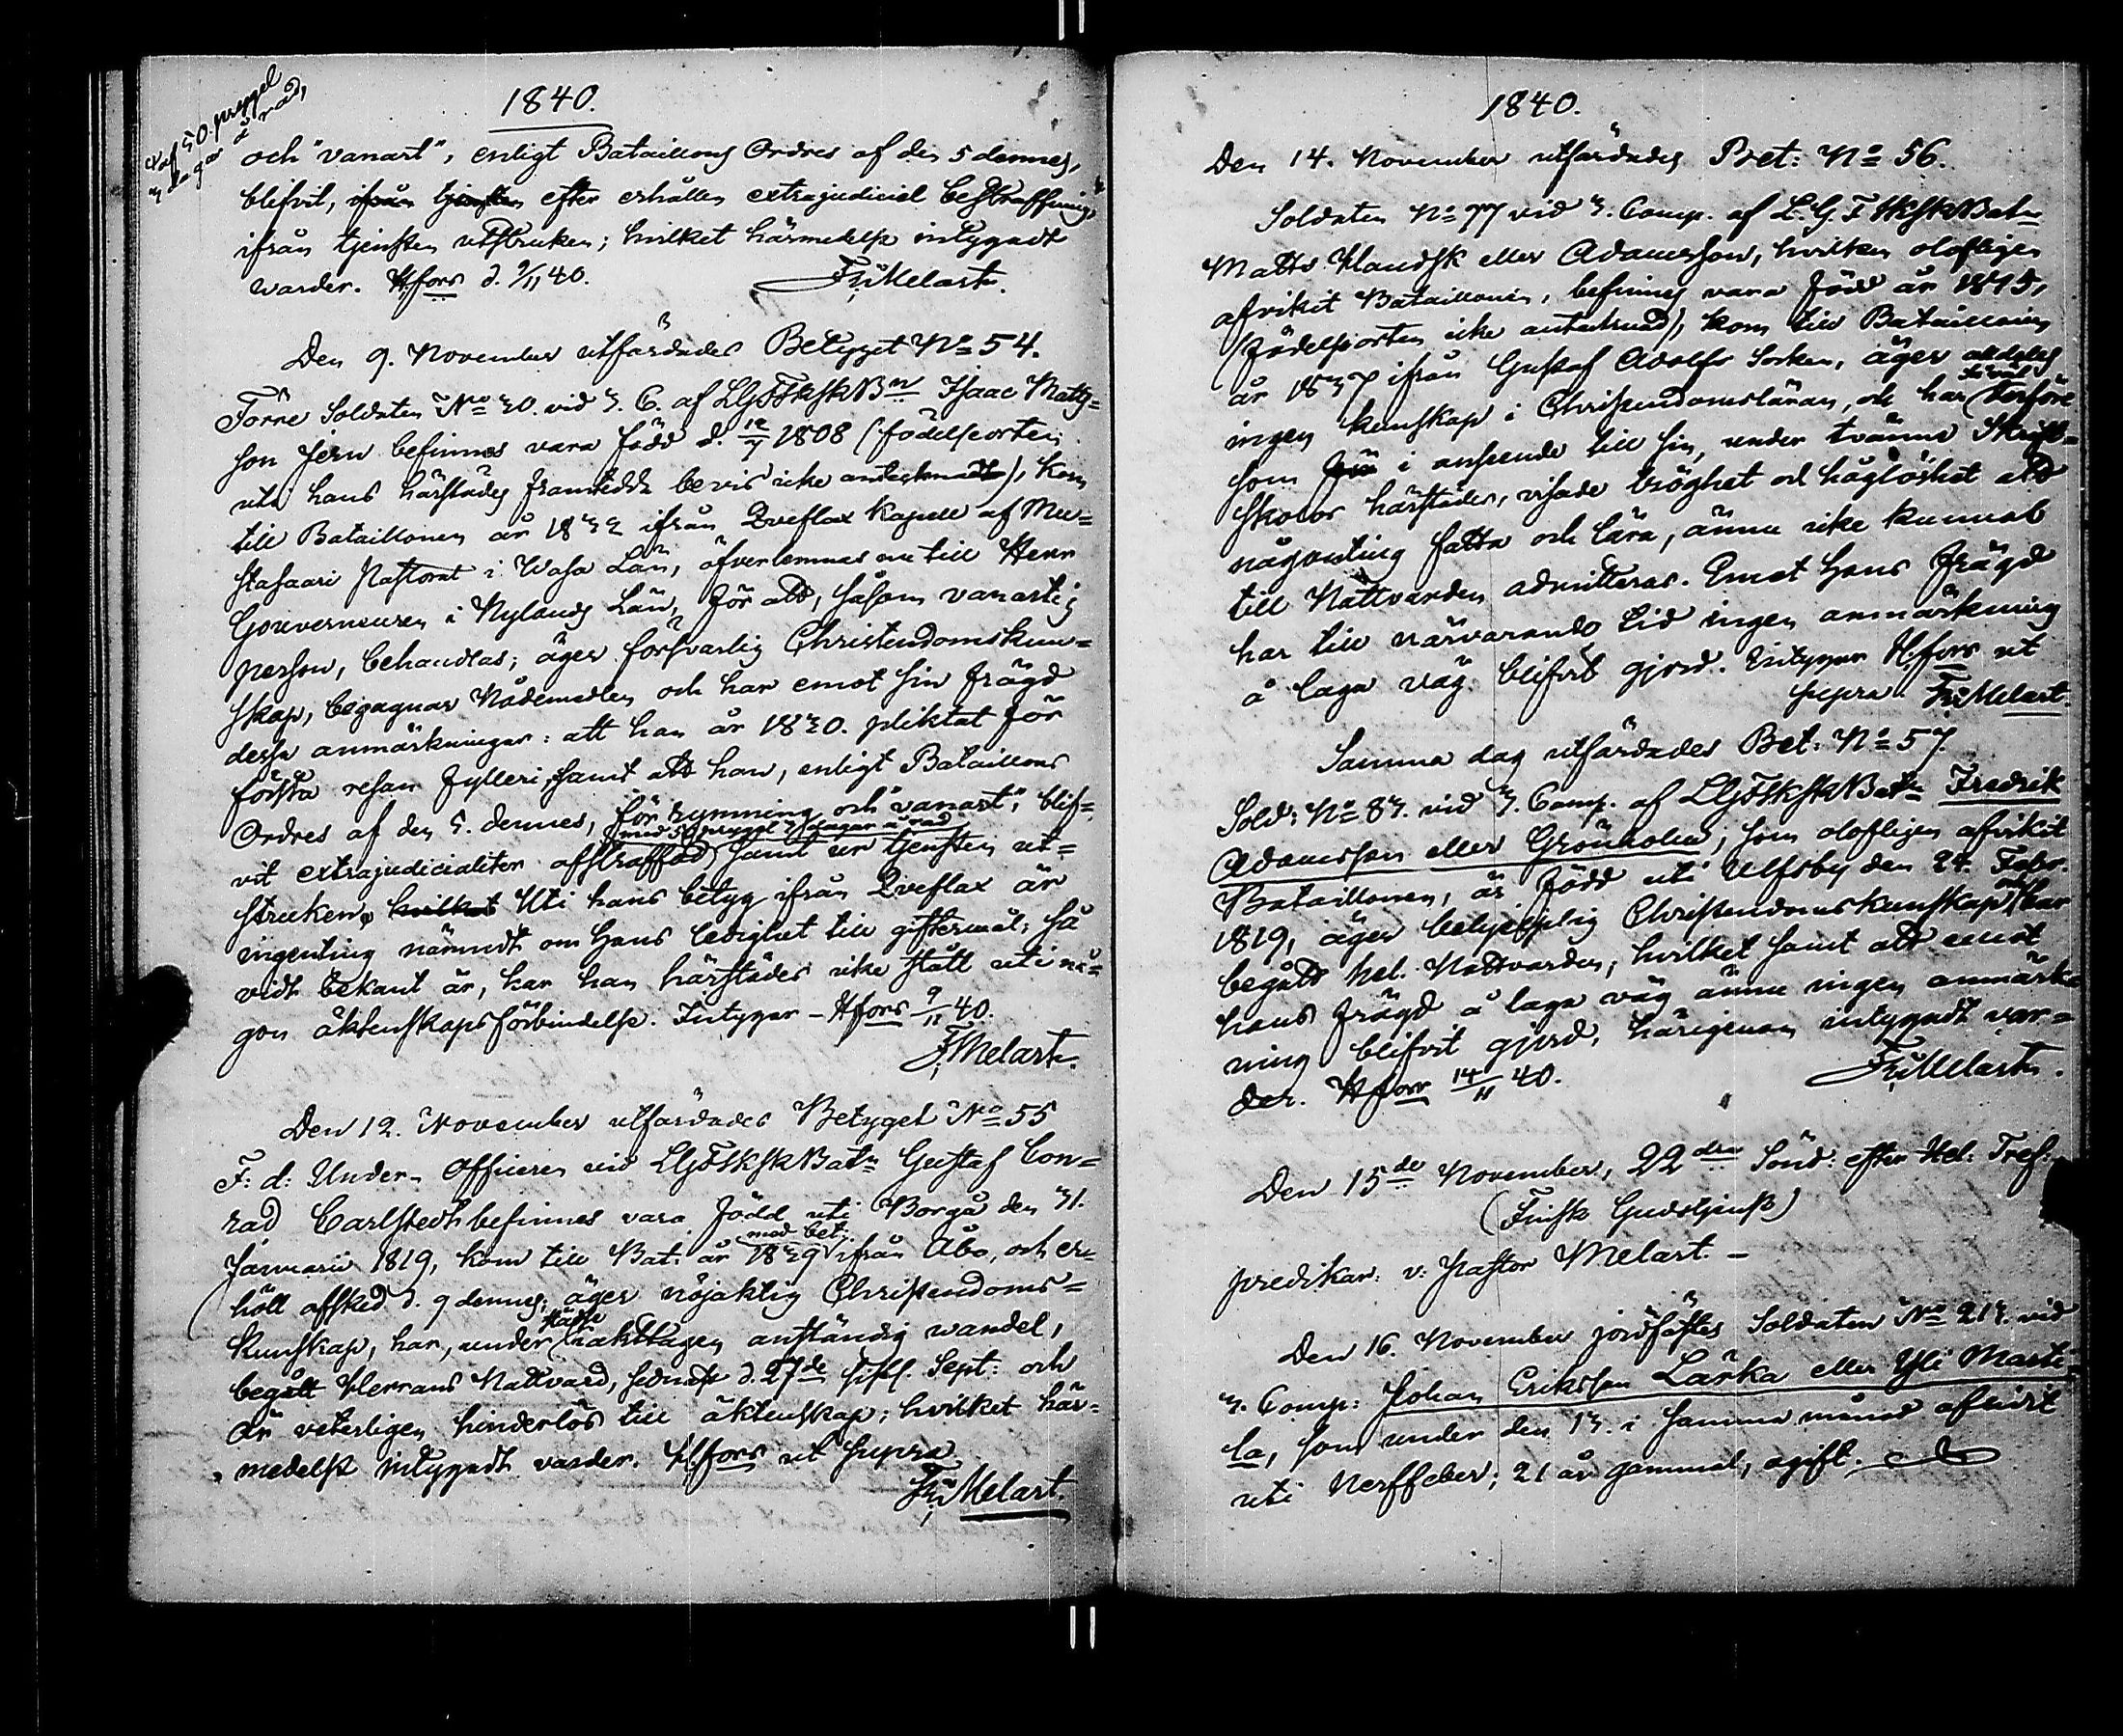 af 50 prygel
3 dagar å rad,
1840.
och "vanart", enligt Bataillons Ordres af den 5 dennes,
blifvit, ifrån tjensten efter erhållen extrajudiciel bestraffning
ifrån tjensten utstruken; hvilket härmedelst intygadt
warder. Hfors d. 9/11 40.
Fr: Melart.
Den 9. November utfärdades Betyget No 54.
Förre Soldaten No 30. vid 3. C. af LGFSkSkBn Isaac Matts=
son Jern befinnes vara född d. 12/7 1808 (födelseorten
uti hans härstädes framtedda bevis icke antecknadt), kom
till Bataillonen år 1832 ifrån Qveflax Kapell af Mu=
stasaari Pastorat i Wasa Län, öfverlemnas nu till Herr
Gouverneuren i Nylands Län, för att, såsom vanartig
person, behandlas; äger försvarlig Christendomskun=
skap, begagnar Nådemedlen och har emot sin frägd
dessa anmärkningar: att han år 1830. pliktat för
första resan fylleri, samt att han, enligt Bataillons
Ordres af den 5. dennes, för rymning och "vanart", blif=
med 50 prygel 3 dagar å rad
vit extrajudicialiter afstraffad samt ur tjensten ut=
struken, hvilket Uti hans betyg ifrån Qveflax är
ingenting nämndt om Hans ledighet till giftermål; så
vidt bekant är, har han härstädes icke stått uti nå=
gon äktenskapsförbindelse. Intygar - Hfors 9/11 40.
F. Melart.
Den 12. November utfärdades Betyget No 55
F: d: Under-Officeren vid LGFSkSkBatn Gustaf Con=
rad Carlstedt befinnes vara född uti Borgå den 31.
med bet.
Januarii 1819, kom till Bat. år 1839 ifrån Åbo, och er=
höll afsked d. 9 dennes; äger nöjaktig Christendoms=
kunskap, har, under iakttagen anständig wandel,
begått Herrans Nattvard, sednast d. 27de sistl. Sept: och
är veterligen hinderlös till äktenskap; hvilket här=
medelst intygadt varder. Hfors ut supra
Fr: Melart.
1840.
Den 14. November utfärdades Bet: No 56.
Soldaten No 77 vid 3. Comp. af L. G. F SkSkBatn
Matts Handsk eller Adamsson, hvilken olofligen
afvikit Bataillonen, befinnes vara född år 1815,
(födelseorten icke antecknad), kom till Bataillonen
år 1837 ifrån Gustaf Adolfs Socken, äger alldeles
ingen kunskap i Christendomsläran, och har derföre
som i anseende till sin, under tvänne Skrift=
skolor härstädes, visade tröghet och håglöshet att
någonting fatta och lära, ännu icke kunnat
till Nattvarden admitteras. Emot Hans frägd
har till närvarande tid ingen anmärkning
å laga väg blifvit gjord. Intygar Hfors ut
supra. Fr: Melart.
Samma dag utfärdades Bet: No 57.
Sold: No 83. vid 3. Comp. af LGFSkSkBatn Fredrik
Adamsson eller Grönholm, som olofligen afvikit
Bataillonen, är född uti Ulfsby den 24. Febr.
1819, äger behjelplig Christendomskunskap, har
begått Hel. Nattvarden; hvilket samt att emot
hans frägd å laga väg ännu ingen anmärk=
ning blifvit gjord, härigenom intygadt var=
der. Hfors 14/11 40.
Fr: Melart.
Den 15de November, 22den Sönd: efter Hel: Tref:
(Finsk Gudstjenst)
predikar: v: Pastor Melart. -
Den 16. November jordfästes Soldaten No 213. vid
3. Comp: Johan Eriksson Lärka eller Yli Marti=
la, som under den 13. i samma månad aflidit
uti Nerffeber; 21 år gammal, ogift.